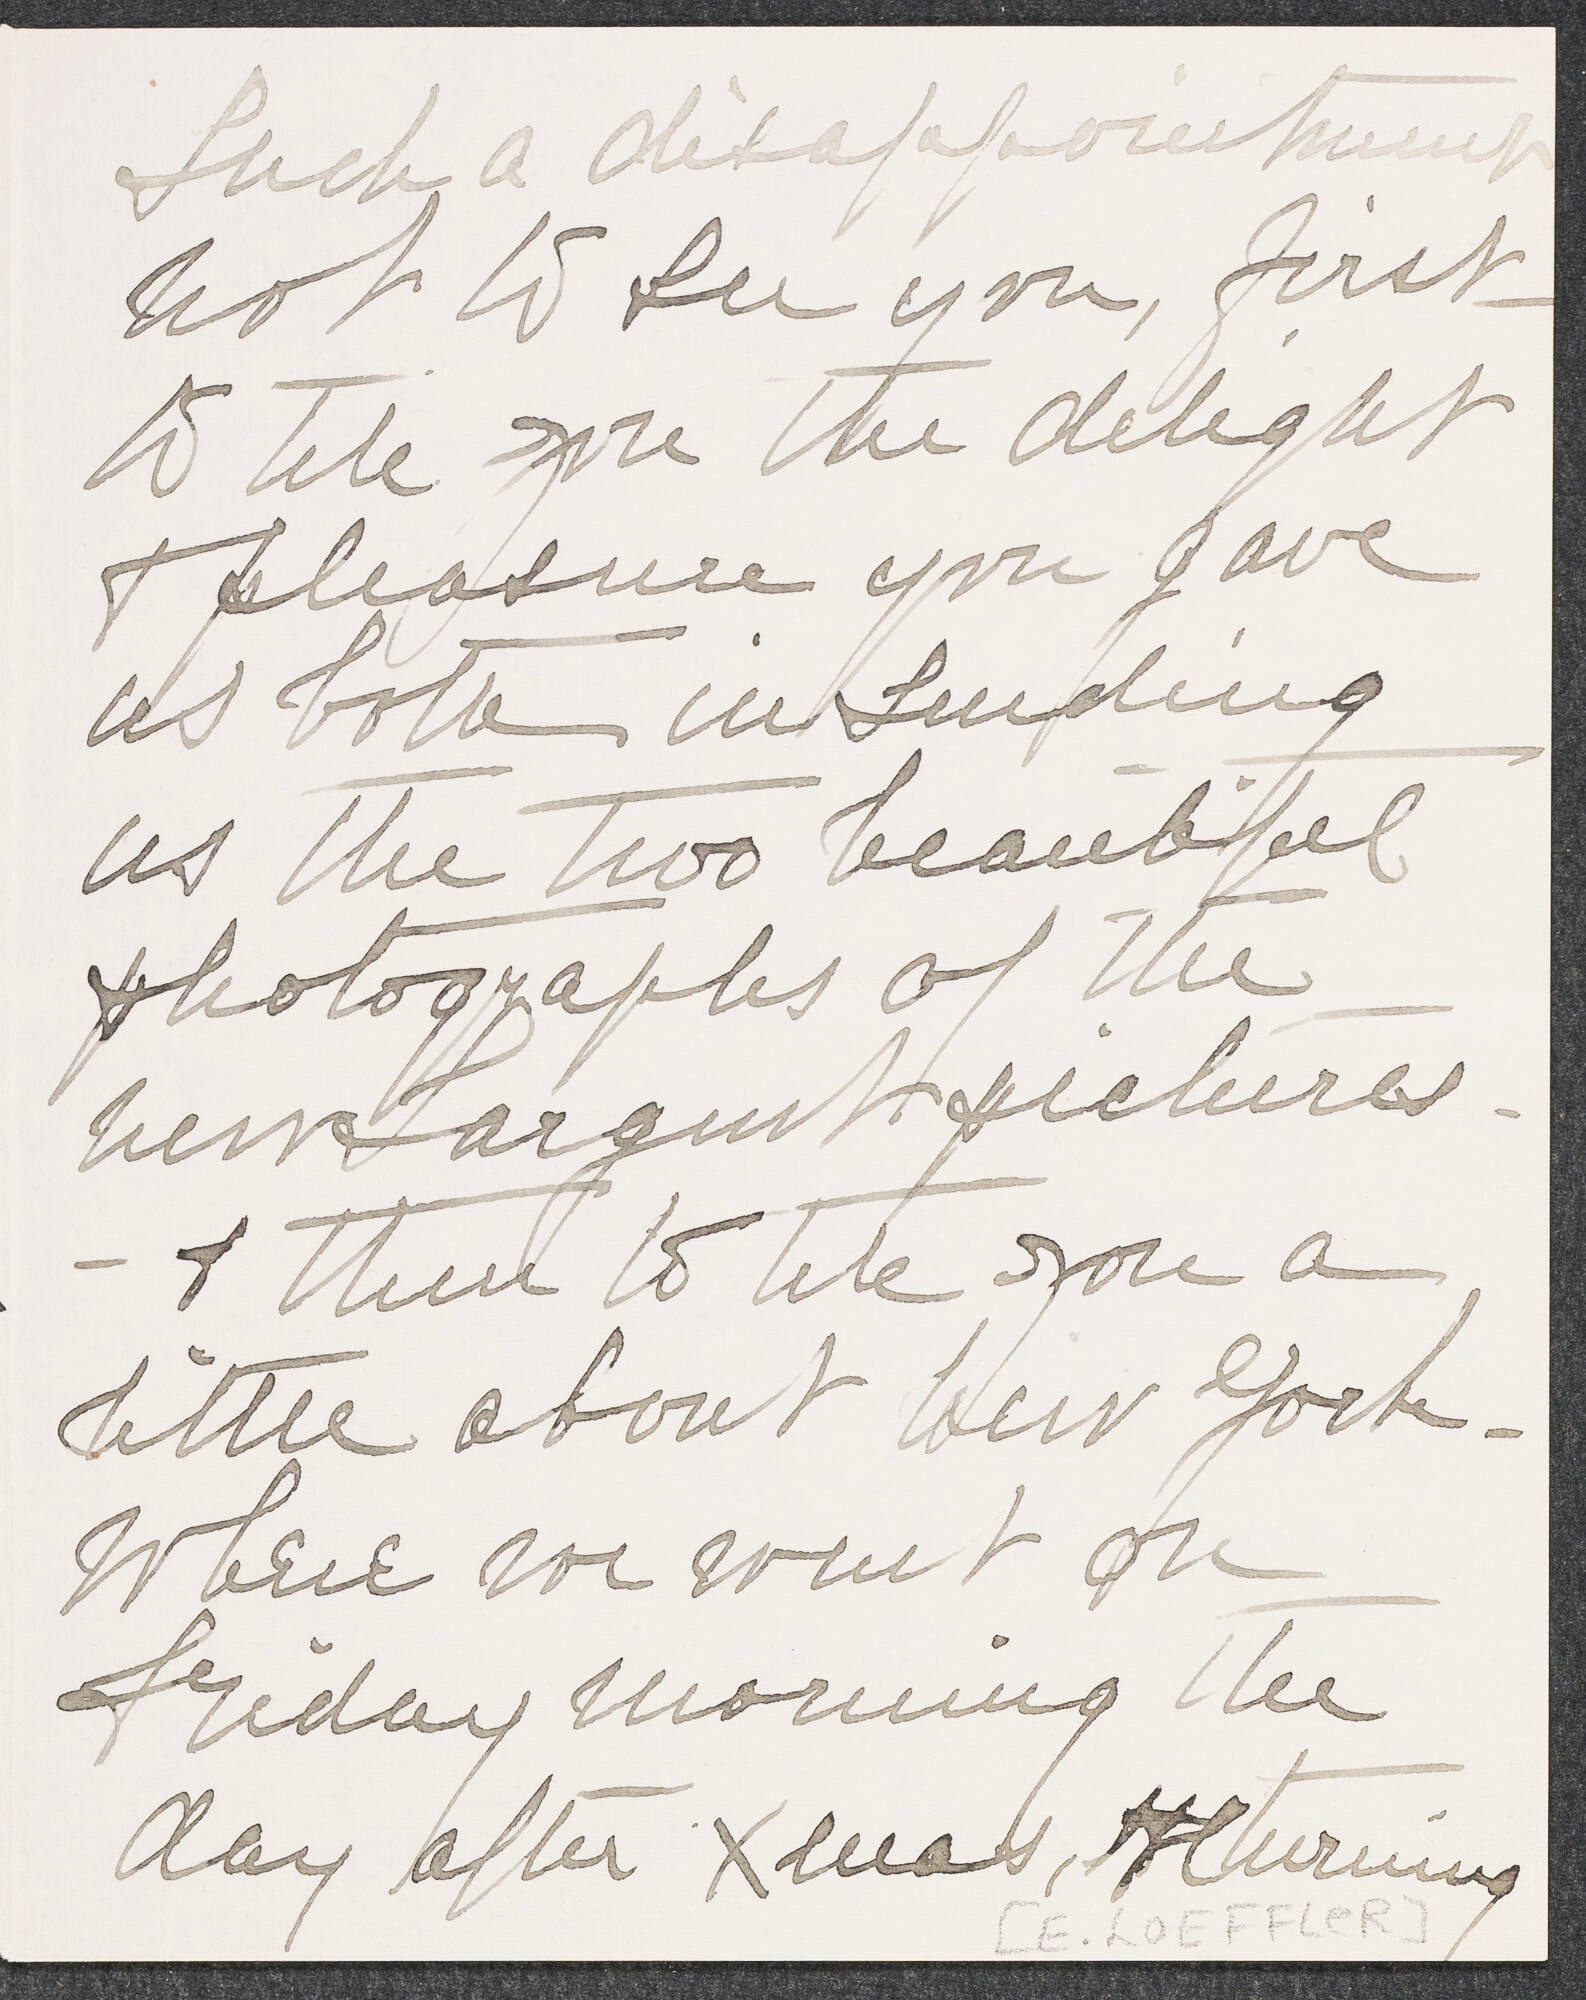 Such a disappointment
not to see you, first
to tell you the delight
& pleasure you gave
us both in sending
us the two beautiful
photographs of the
new Sargent pictures -
- & then to tell you a
little about New York -
Where we went on
Friday morning the
day after Xmas, returning
[E. LOEFFLER]